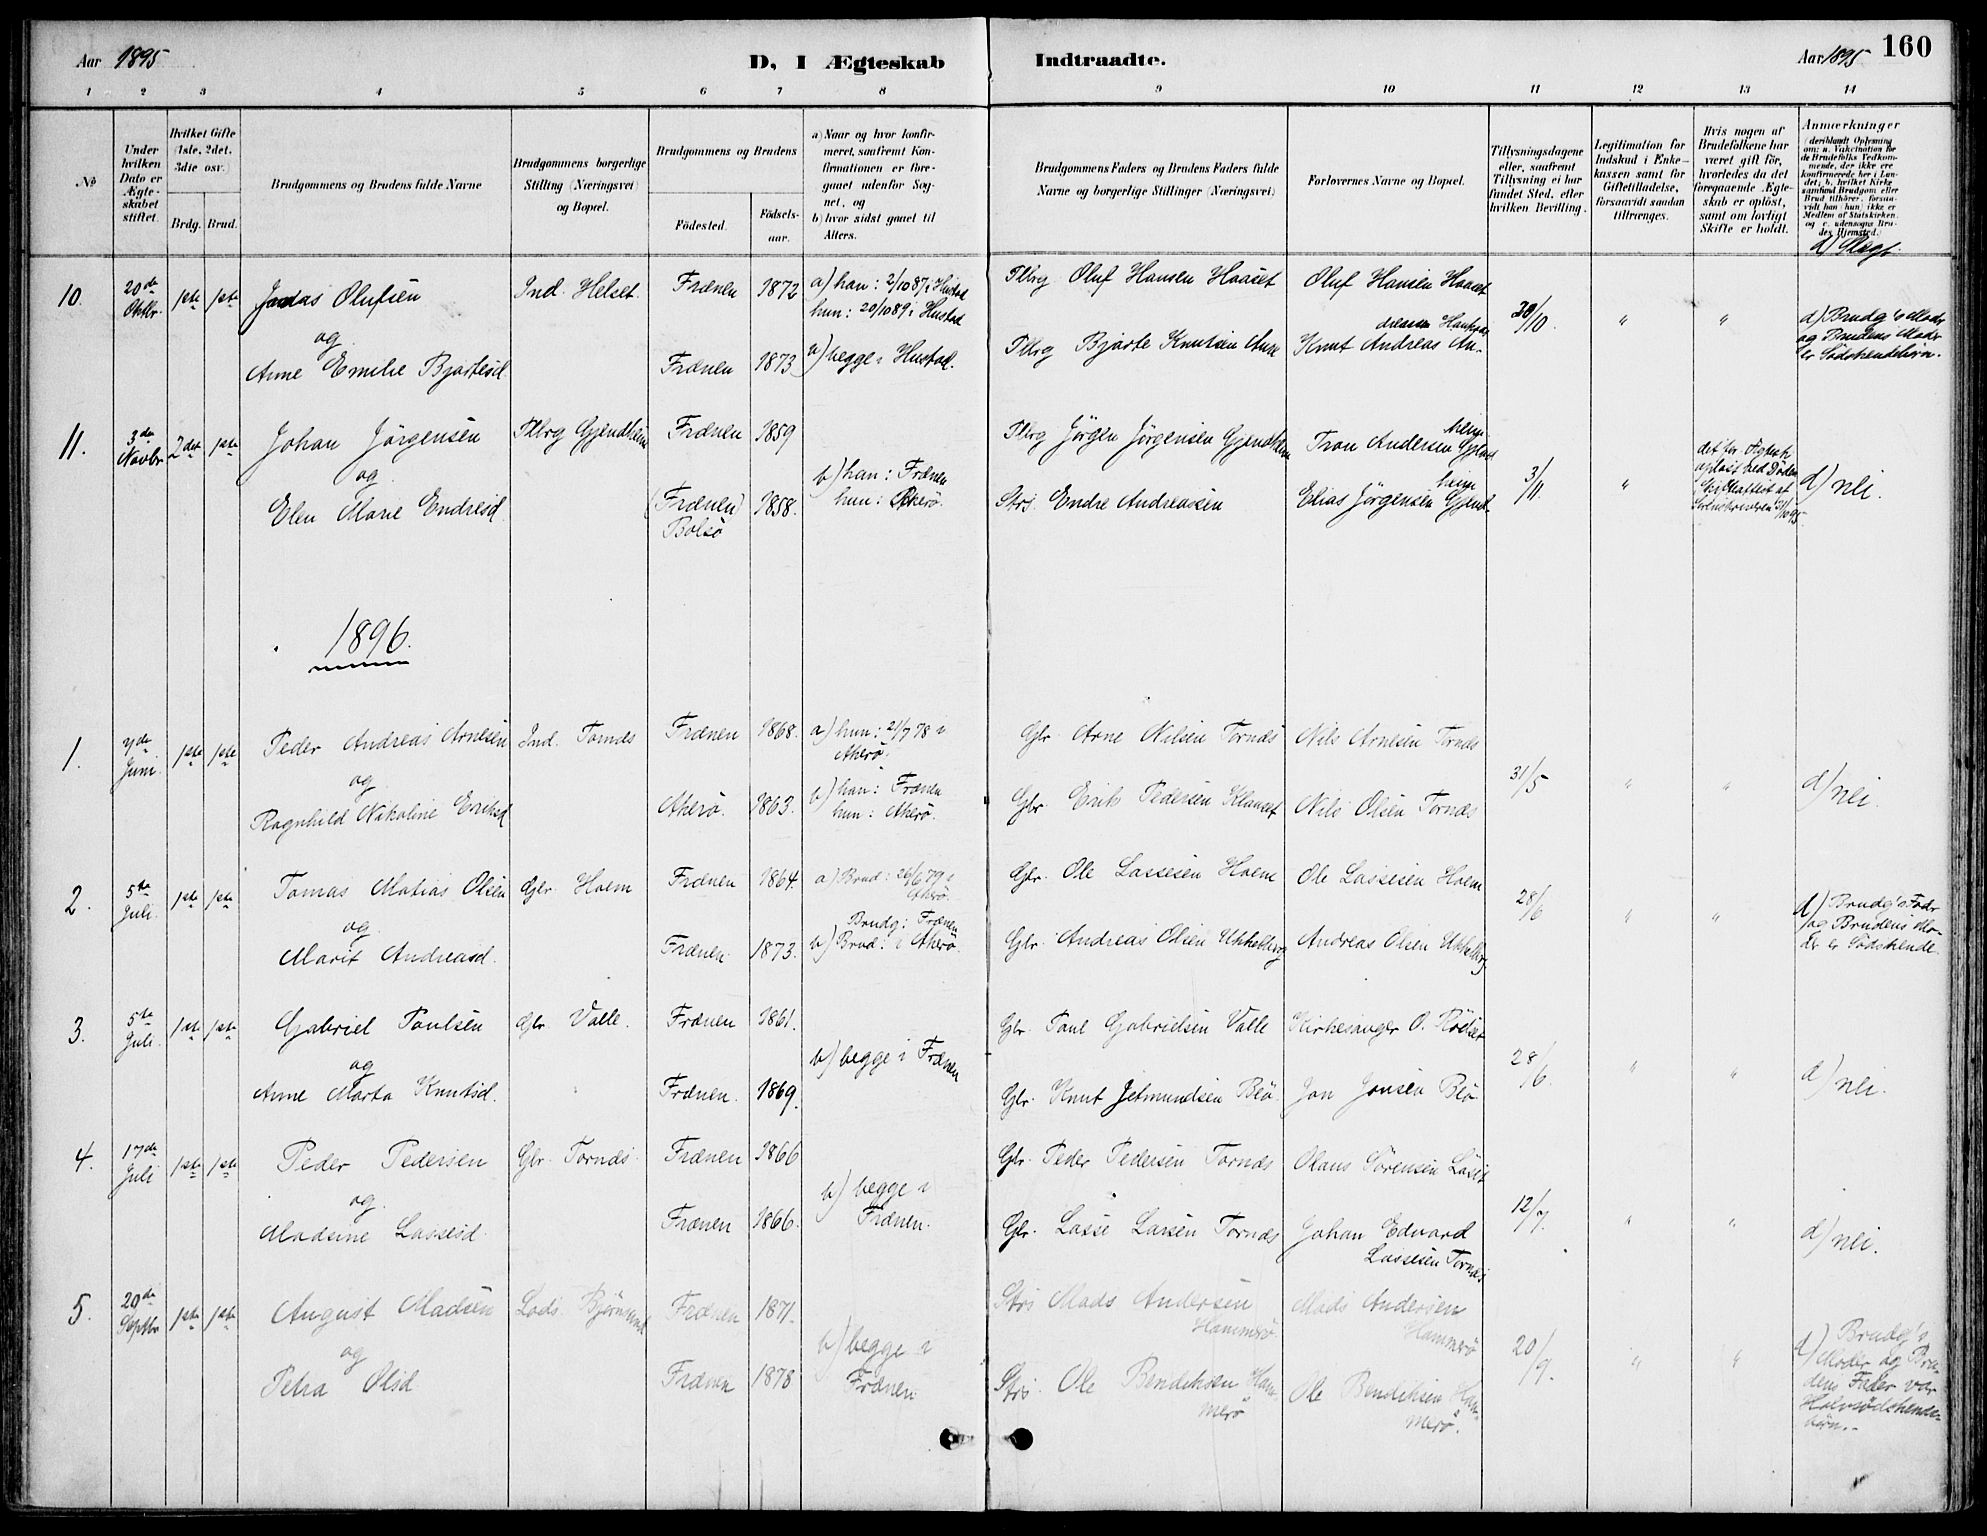 Aar 1895
D, I Ægteskab
Indtraadte.
Aar 1895 160
1 2 3 4 5 6 7 8 9 10 11 12 13 14
No
Under hvilken Dato er Ægteskabet stiftet.
Hvilket Gifte (1ste, 2det, 3die osv.)
Brdg. Brud.
Brudgommens og Brudens fulde Navne
Brudgommens borgerlige Stilling (Næringsvei) og Bopæl.
Brudgommens og Brudens
Fødested.
Fødselsaar.
a) Naar og hvor konfirmeret, saafremt Konfirmationen er foregaaet udenfor Sognet, og
b) hvor sidst gaaet til Alters.
Brudgommens Faders og Brudens Faders fulde Navne og borgerlige Stillinger (Næringsvei)
Forlovernes Navne og Bopæl.
Tillysningsdagene eller, saafremt Tillysning ei har fundet Sted, efter hvilken Bevilling.
Legitimation for Indskud i Enkekassen samt for Giftetilladelse, forsaavidt saadan tiltrænges.
Hvis nogen af Brudefolkene har været gift før, hvorledes da det foregaaende Ægteskab er opløst, samt om lovligt Skifte er holdt.
Anmærkninger (deriblandt Oplysning om: a. Vakcination for de Brudefolks Vedkommende, der ikke ere konfirmerede her i Landet; b. hvilket Kirkesamfund Brudgom eller Brud tilhører, forsaavidt han (hun) ikke er Medlem af Statskirken, og c. udensogns Brudes Hjemsted.)
d) Slægt.
10. 20de Oktbr. 1ste 1ste
Olufsen
og
Anne Emilie Bjartesd.
Ind. Helset
Frænen 1872
Frænen 1873
a) han: 2/10 87 i Hustad
hun: 20/10 89 i Hustad
b) begge i Hustad.
Pllbrg Oluf Hansen Haaset
Pllbrg Bjarte Knutsen
Oluf Hansen Haaset
Knut Andreas An-
d) Brudg's Moder
og Brudens Moder
er Södskendebörn.
11. 3de Novbr 2det 1ste
Johan Jörgensen
og
Elen Marie Endresd.
Pllbrg Gjendheim
Frænen 1859
(Frænen) Bolsö 1858.
b) han: Frænen
hun: Akerö.
Pllbrg Jörgen Jörgensen Gjendheim
Strs. Endre Andreassen
Tron Andersen Gjendheim
Elias Jörgensen Gjendheim
3/11.
"
d) nei.
1896.
1. 7de Juni. 1ste 1ste
Peder Andreas Arnesen
og
Ragnhild Nikoline Eriksd
Ind. Tornes
Frænen 1868.
Akerö. 1863.
a) hun: 21/7 78 i
Akerö.
b) han: Frænen
hun: Akerö.
Gbr. Arne Nilsen Tornes
Gbr. Erik Pedersen Klauset
Nils Arnesen Tornes
Nils Olsen Tornes
31/5
"
"
d) nei.
2. 5te Juli. 1ste 1ste
Tomas Matias Olsen
og
Marit Andreasd.
Gbr. Hoem
Frænen 1864.
Frænen 1873.
a) Brud: 26/6 79 i
Akerö.
Brudg: Frænen
b) Brud: i Akerö.
Gbr. Ole Lassesen Hoem
Gbr. Andreas Olsen Ukkelberg
Ole Lassesen Hoem
Andreas Olsen Ukkelberg
28/6
"
"
d) Brudg's Fader
og Brudens Mo-
der er Södskende.
3. 5te Juli. 1ste 1ste
Gabriel Paulsen
og
Anne Marta Knutsd.
Gbr. Valle.
Frænen 1861.
Frænen. 1869.
b) begge i Frænen
Gbr Paul Gabrielsen Valle
Gbr. Knut Jetmundsen Beö.
Kirkesanger O. Röeset
Jon Jonsen Beö
28/6.
"
"
d) nei.
4. 17de Juli 1ste 1ste
Peder Pedersen
og
Madsine Lassesd.
Gbr. Tornes
Frænen 1866
Frænen 1866.
b) begge i
Frænen.
Gbr. Peder Pedersen Tornes
Gbr. Lasse Larsen Tornes
Olaus Sörensen
Johan Edvard
Lassesen Tornes
12/7.
"
"
d) nei.
5. 20de Septbr 1ste 1ste
August Madsen
og
Petra Olsd
Lods. Björnsund
Frænen 1871.
Frænen 1878
b) begge i
Frænen
Strs Mads Andersen
Hammerö.
Strs. Ole Bendiksen Ham-
merö
Mads Andersen
Hammerö
Ole Bendiksen Ham-
merö.
20/9.
"
"
d) Brudg's
Moder og Bru-
dens Fader var
Halvsödskende-
börn.